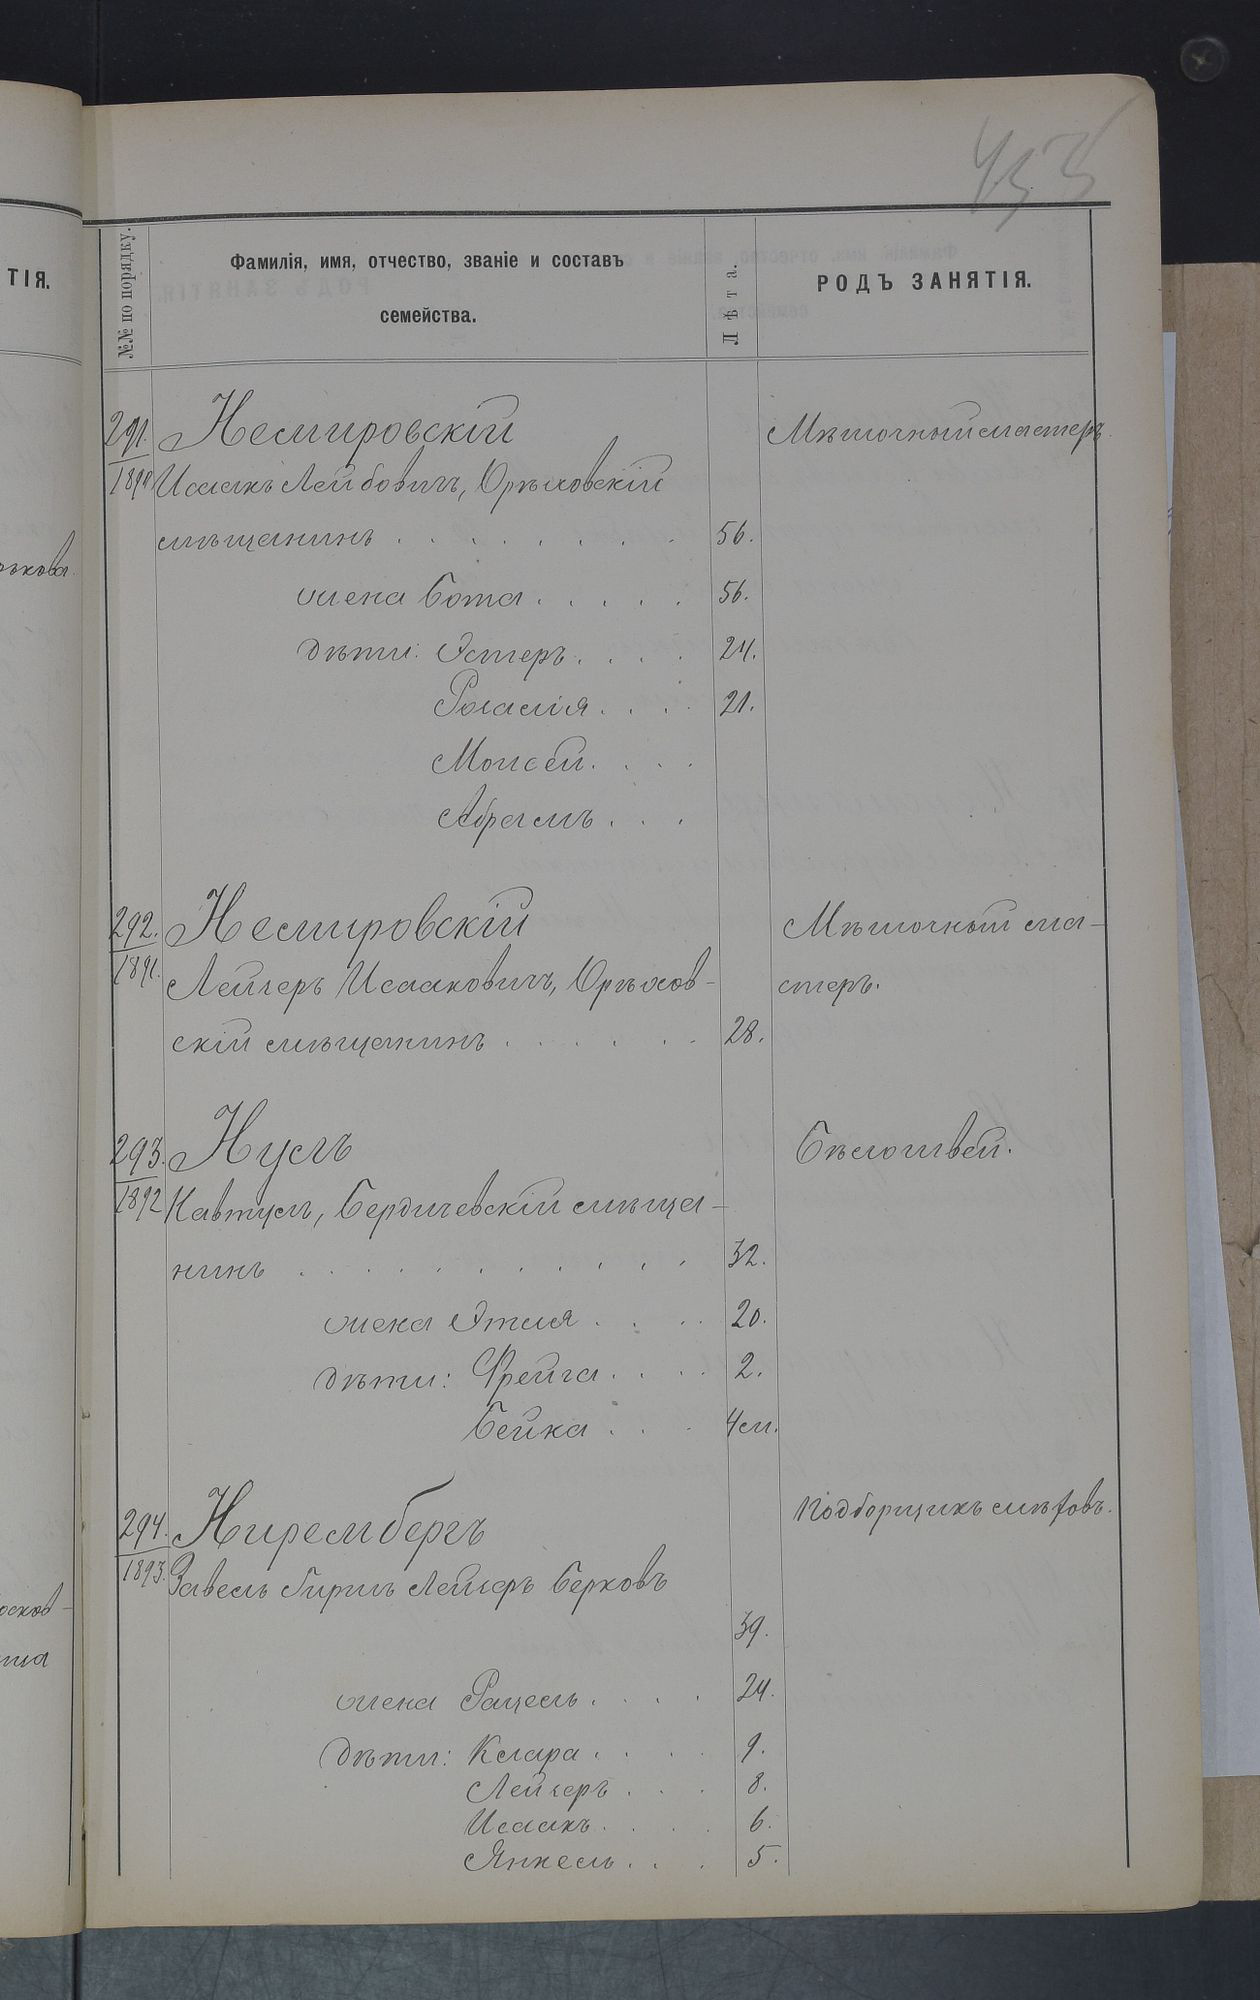 453
ТІЯ.
№№ по порядку.
Фамилія, имя, отчество, званіе и составъ
семейства.
Лѣта.
РОДЪ ЗАНЯТІЯ.
291. Немировскій Мѣшочный мастеръ.
1890 Исаакъ Лейбовичъ, Орѣховскій
мѣщанинъ . . . . . . . . 56.
жена Бота . . . . . 56.
дѣти: Эстеръ . . . . 24.
Розалія . . . . 21.
Моисей . . . .
Абрамъ . . .
292. Немировскій Мѣшочный ма-
1891. Лейзеръ Исааковичъ, Орѣхов- стеръ.
скій мѣщанинъ . . . . . . 28.
293. Нусъ Бѣлошвей.
1892 Бердичевскій мѣща-
нинъ . . . . . . . . . . . 32.
жена Этля . . . . 20.
дѣти: Фрейга . . . . 2.
Бейка . . . 4м.
294. Нирембергъ Подборщикъ мѣховъ.
1893. Завель Гиршъ Лейзеръ Берковъ
39.
жена Рацель . . . . 24.
дѣти: Клара . . . . 9.
Лейзеръ . . . 8.
Исаакъ . . . . 6.
Янкель . . . 5.